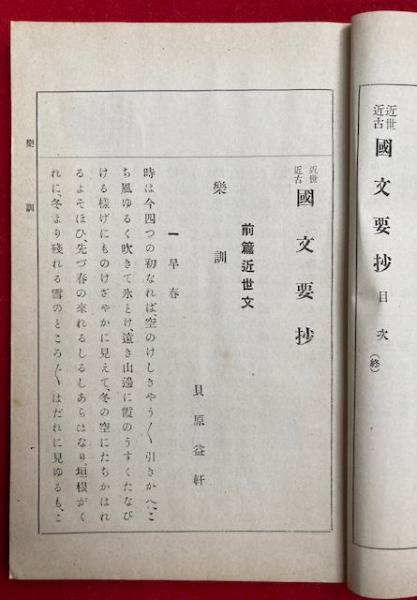 近世
近古
國文要抄 目次(終)
近世
近古
國文要抄
前篇近世文
樂訓
貝原益軒
一 早春
時は今四つの初なれば、空のけしきやう〳〵引きかへ、こ
ち風ゆるく吹きて氷とけ、遠き山邊に霞のうすくたなび
ける樣げにものけざやかに見えて、冬の空にたちかはれ
るよそほひ、先づ春の來れるしるしあらはなり。垣根がく
れに、冬より殘れる雪のところ〴〵はだれに見ゆるも、こ
樂訓